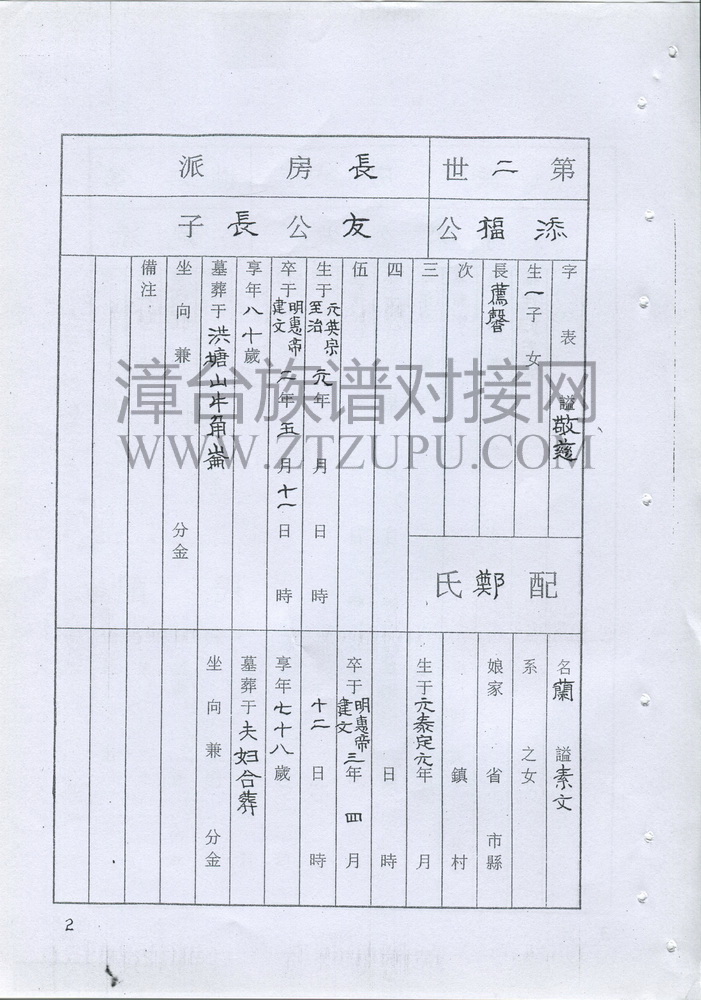 第二世
長房派
添福公
友公長子
字表 諡敬慈
生一子女
長薦馨
次
三
四
伍
生于元英宗至治元年 月 日 時
卒于明惠帝建文二年五月十一日 時
享年八十歲
墓葬于洪塘山牛角崙
坐向兼 分金
備注
配鄭氏
名蘭 諡素文
系 之女
娘家 省 市縣
鎮 村
生于元泰定元年 月
日 時
卒于明惠帝建文三年四月
十二日 時
享年七十八歲
墓葬于夫妇合葬
坐向兼 分金
2
漳台族谱对接网
WWW.ZTZUPU.COM